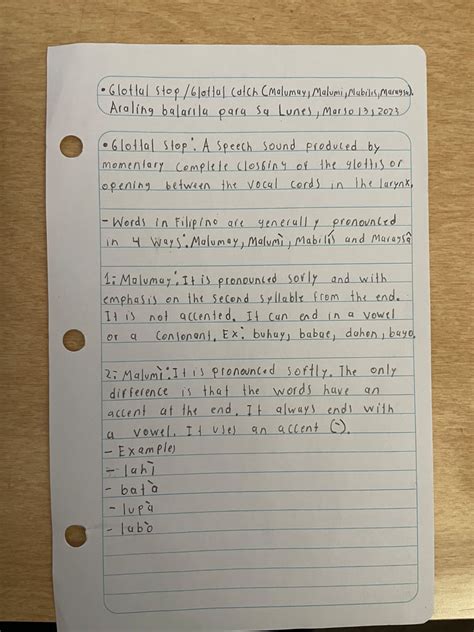 • Glottal Stop/Glottal Catch (Malumay, Malumi, Mabilis, Maragsa).
Araling balarila para sa Lunes, Marso 13, 2023
• Glottal Stop: A speech sound produced by
momentary complete clossing of the glottis or
opening between the vocal cords in the larynx.
- Words in Filipino are generally pronounced
in 4 ways: Malumay, Malumì, Mabilís and Maragsâ
1: Malumay: It is pronounced sofly and with
emphasis on the second syllable from the end.
It is not accented. It can end in a vowel
or a consonant. Ex: buhay, babae, dahon, bayo.
2: Malumì: It is pronounced softly. The only
difference is that the words have an
accent at the end. It always ends with
a vowel. It uses an accent (`).
- Examples
- lahì
- batà
- lupà
- labò